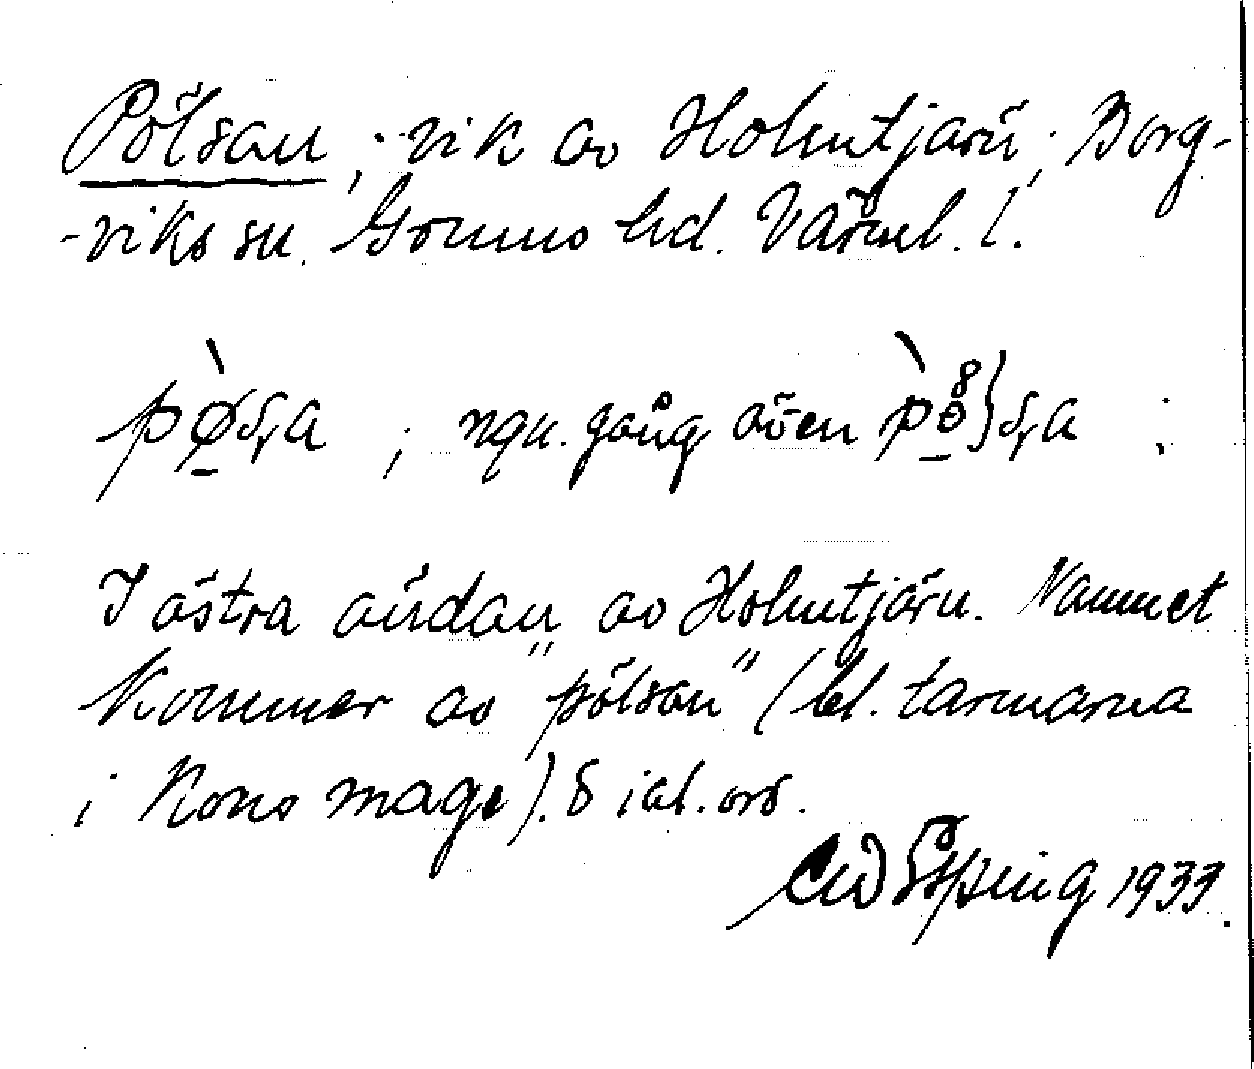 Pölsan, vik av Holmtjärn, Borg-
-viks sn. Grums hd. Värml. l.
; ngn. gång även
I östra ändan av Holmtjärn. Namnet
kommer av "pölsan" (bl. tarmarna
i kons mage). Dial. ord.
1933.